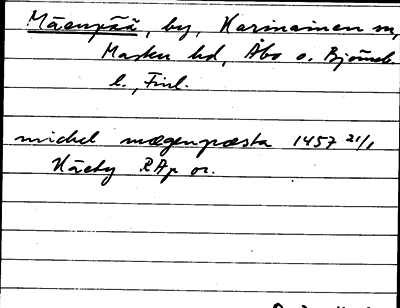 Mäenpää, by, Karinainen sn,
Masku hd, Åbo o. Björneb.
l., Finl.
michel mægenpæsta 1457 21/1
Näety RAp or.